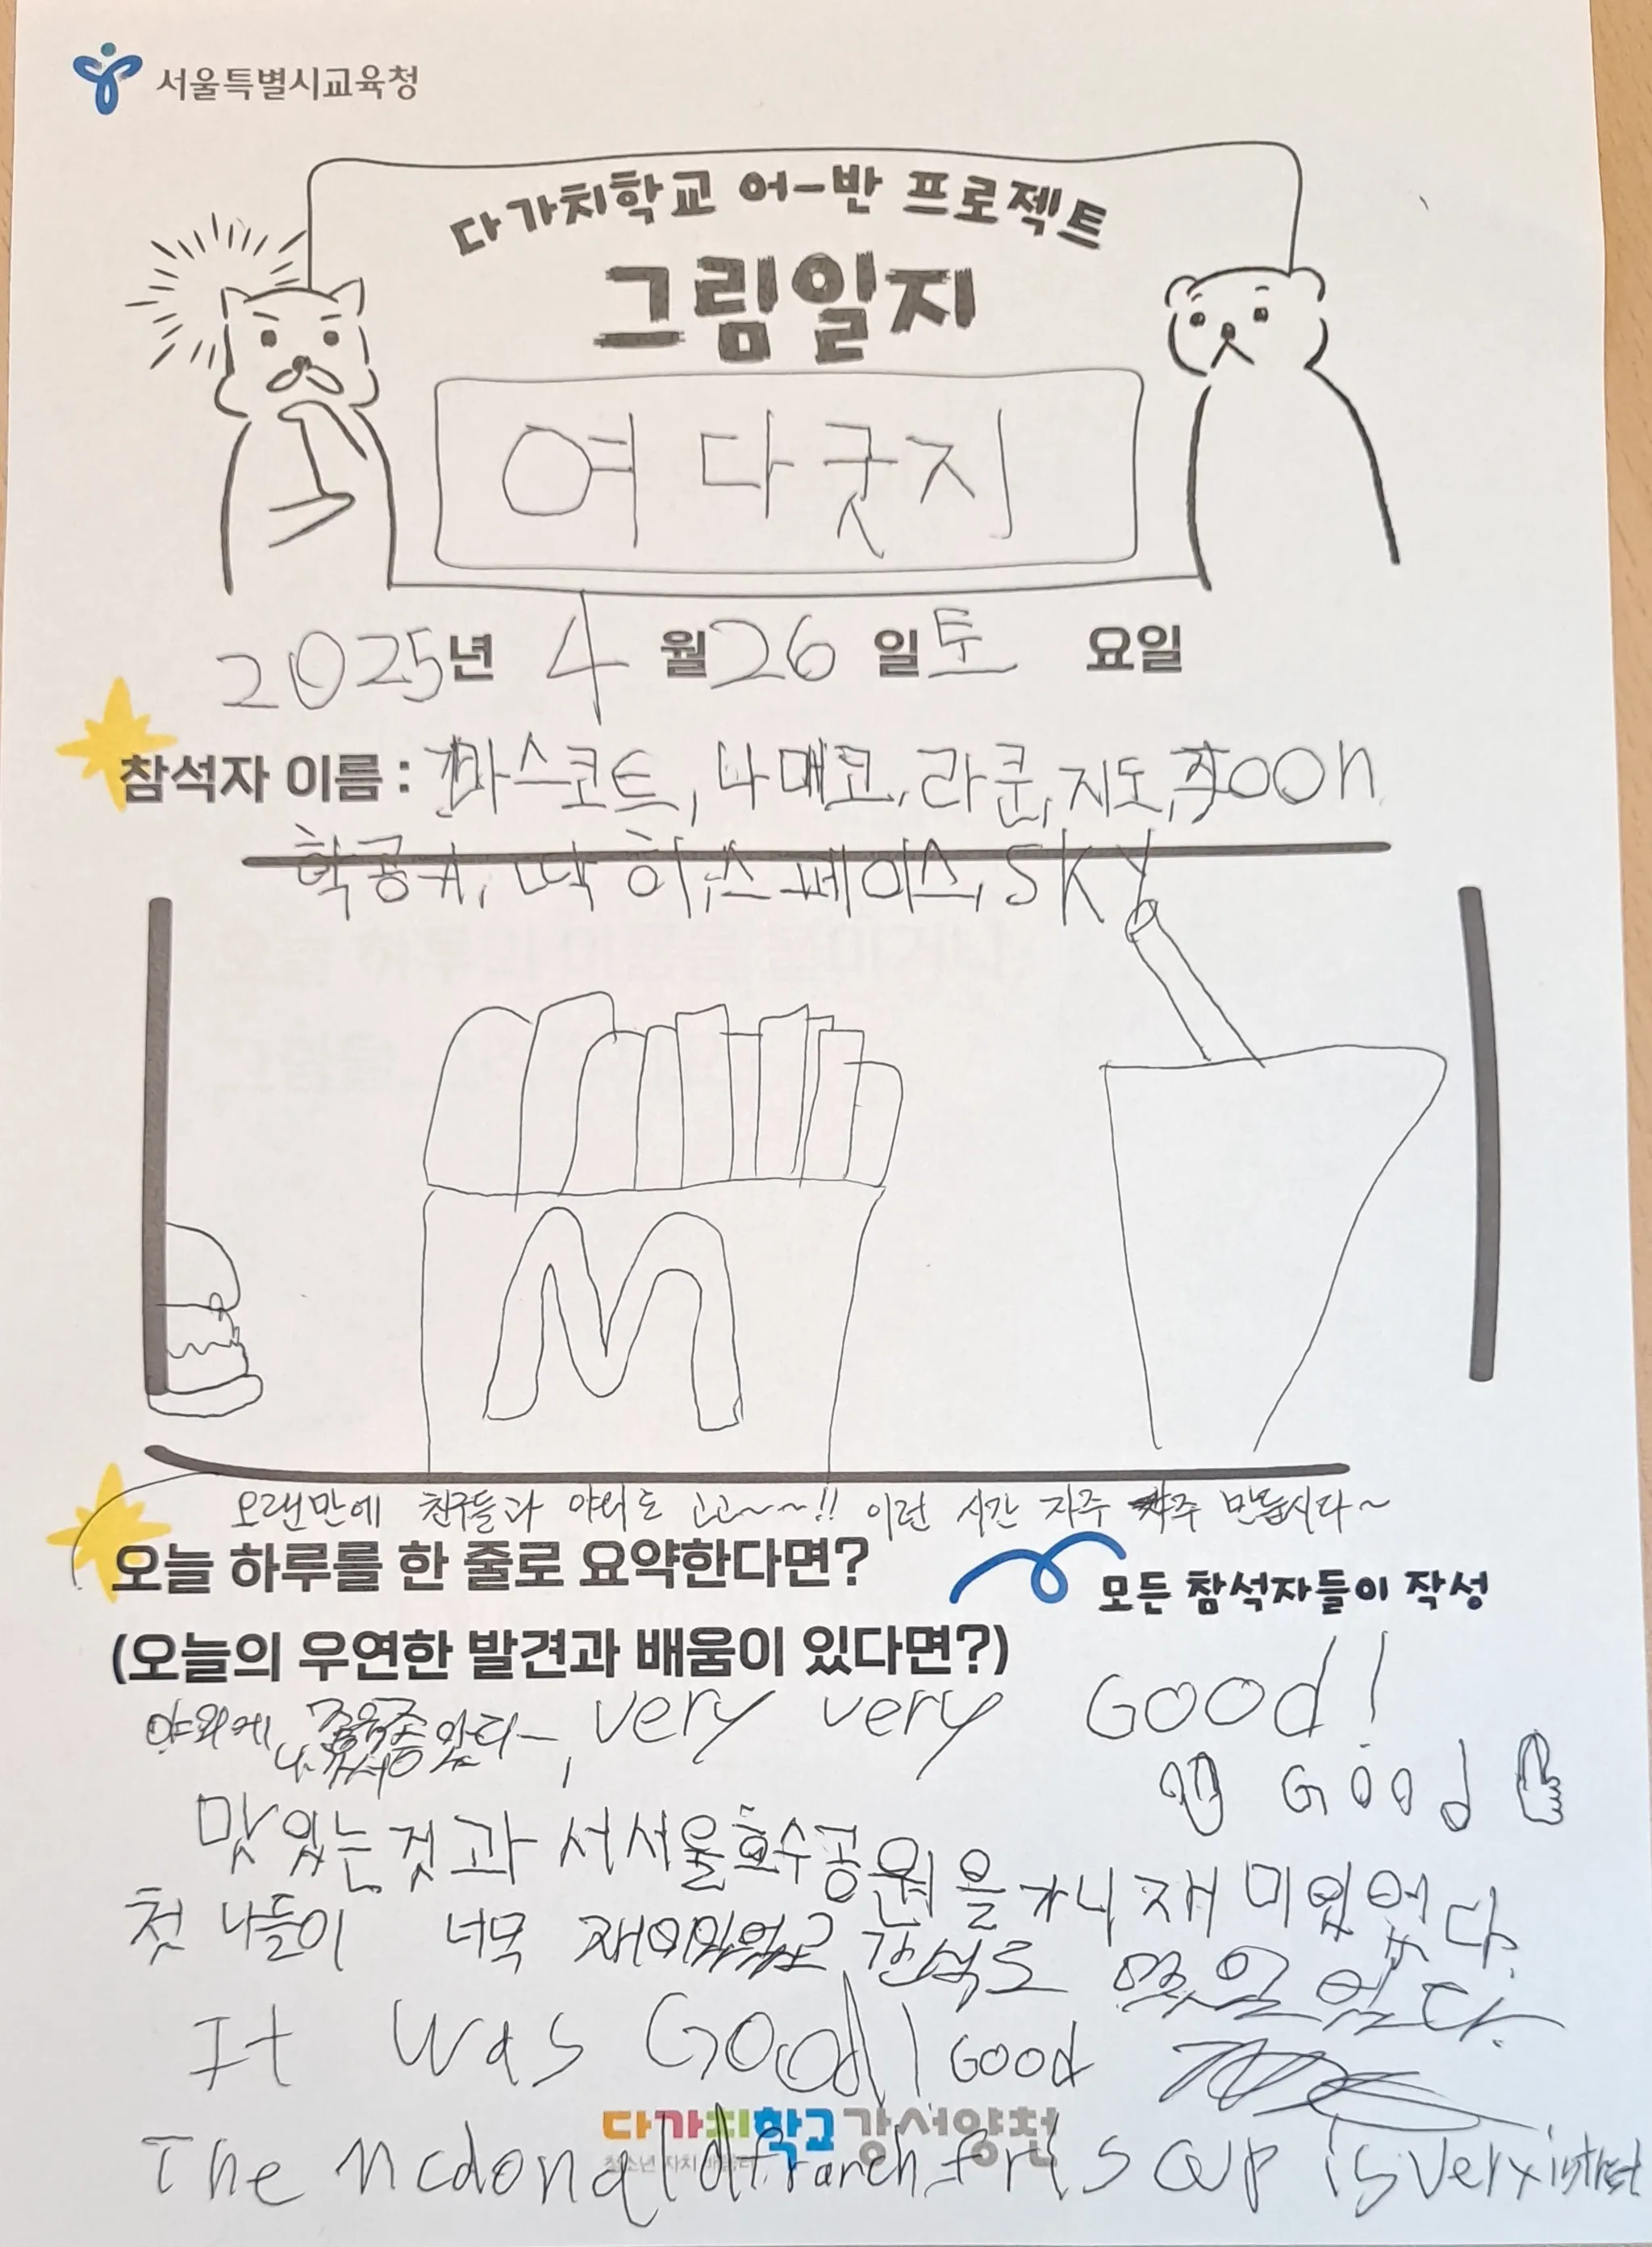 서울특별시교육청
다가치학교 어-반 프로젝트
그림일지
여다굿지
2025년 4월 26일 토요일
참석자 이름 : 마스코트, 나매코, 라쿤, 지도, Joon
학공A, 딱히, 스페이스, SKY
M
오랜만에 친구들과 야외로 고고~~~!! 이런 시간 자주 자주 만듭시다~
오늘 하루를 한 줄로 요약한다면?
모든 참석자들이 작성
(오늘의 우연한 발견과 배움이 있다면?)
very very Good!
Good
맛있는것과 서서울호수공원을 가니 재미있었다.
첫 나들이 너무 재미있었고 간식도
It was Good! Good
다가치학교 강서양천
The mcdonald franch fri s cup is very